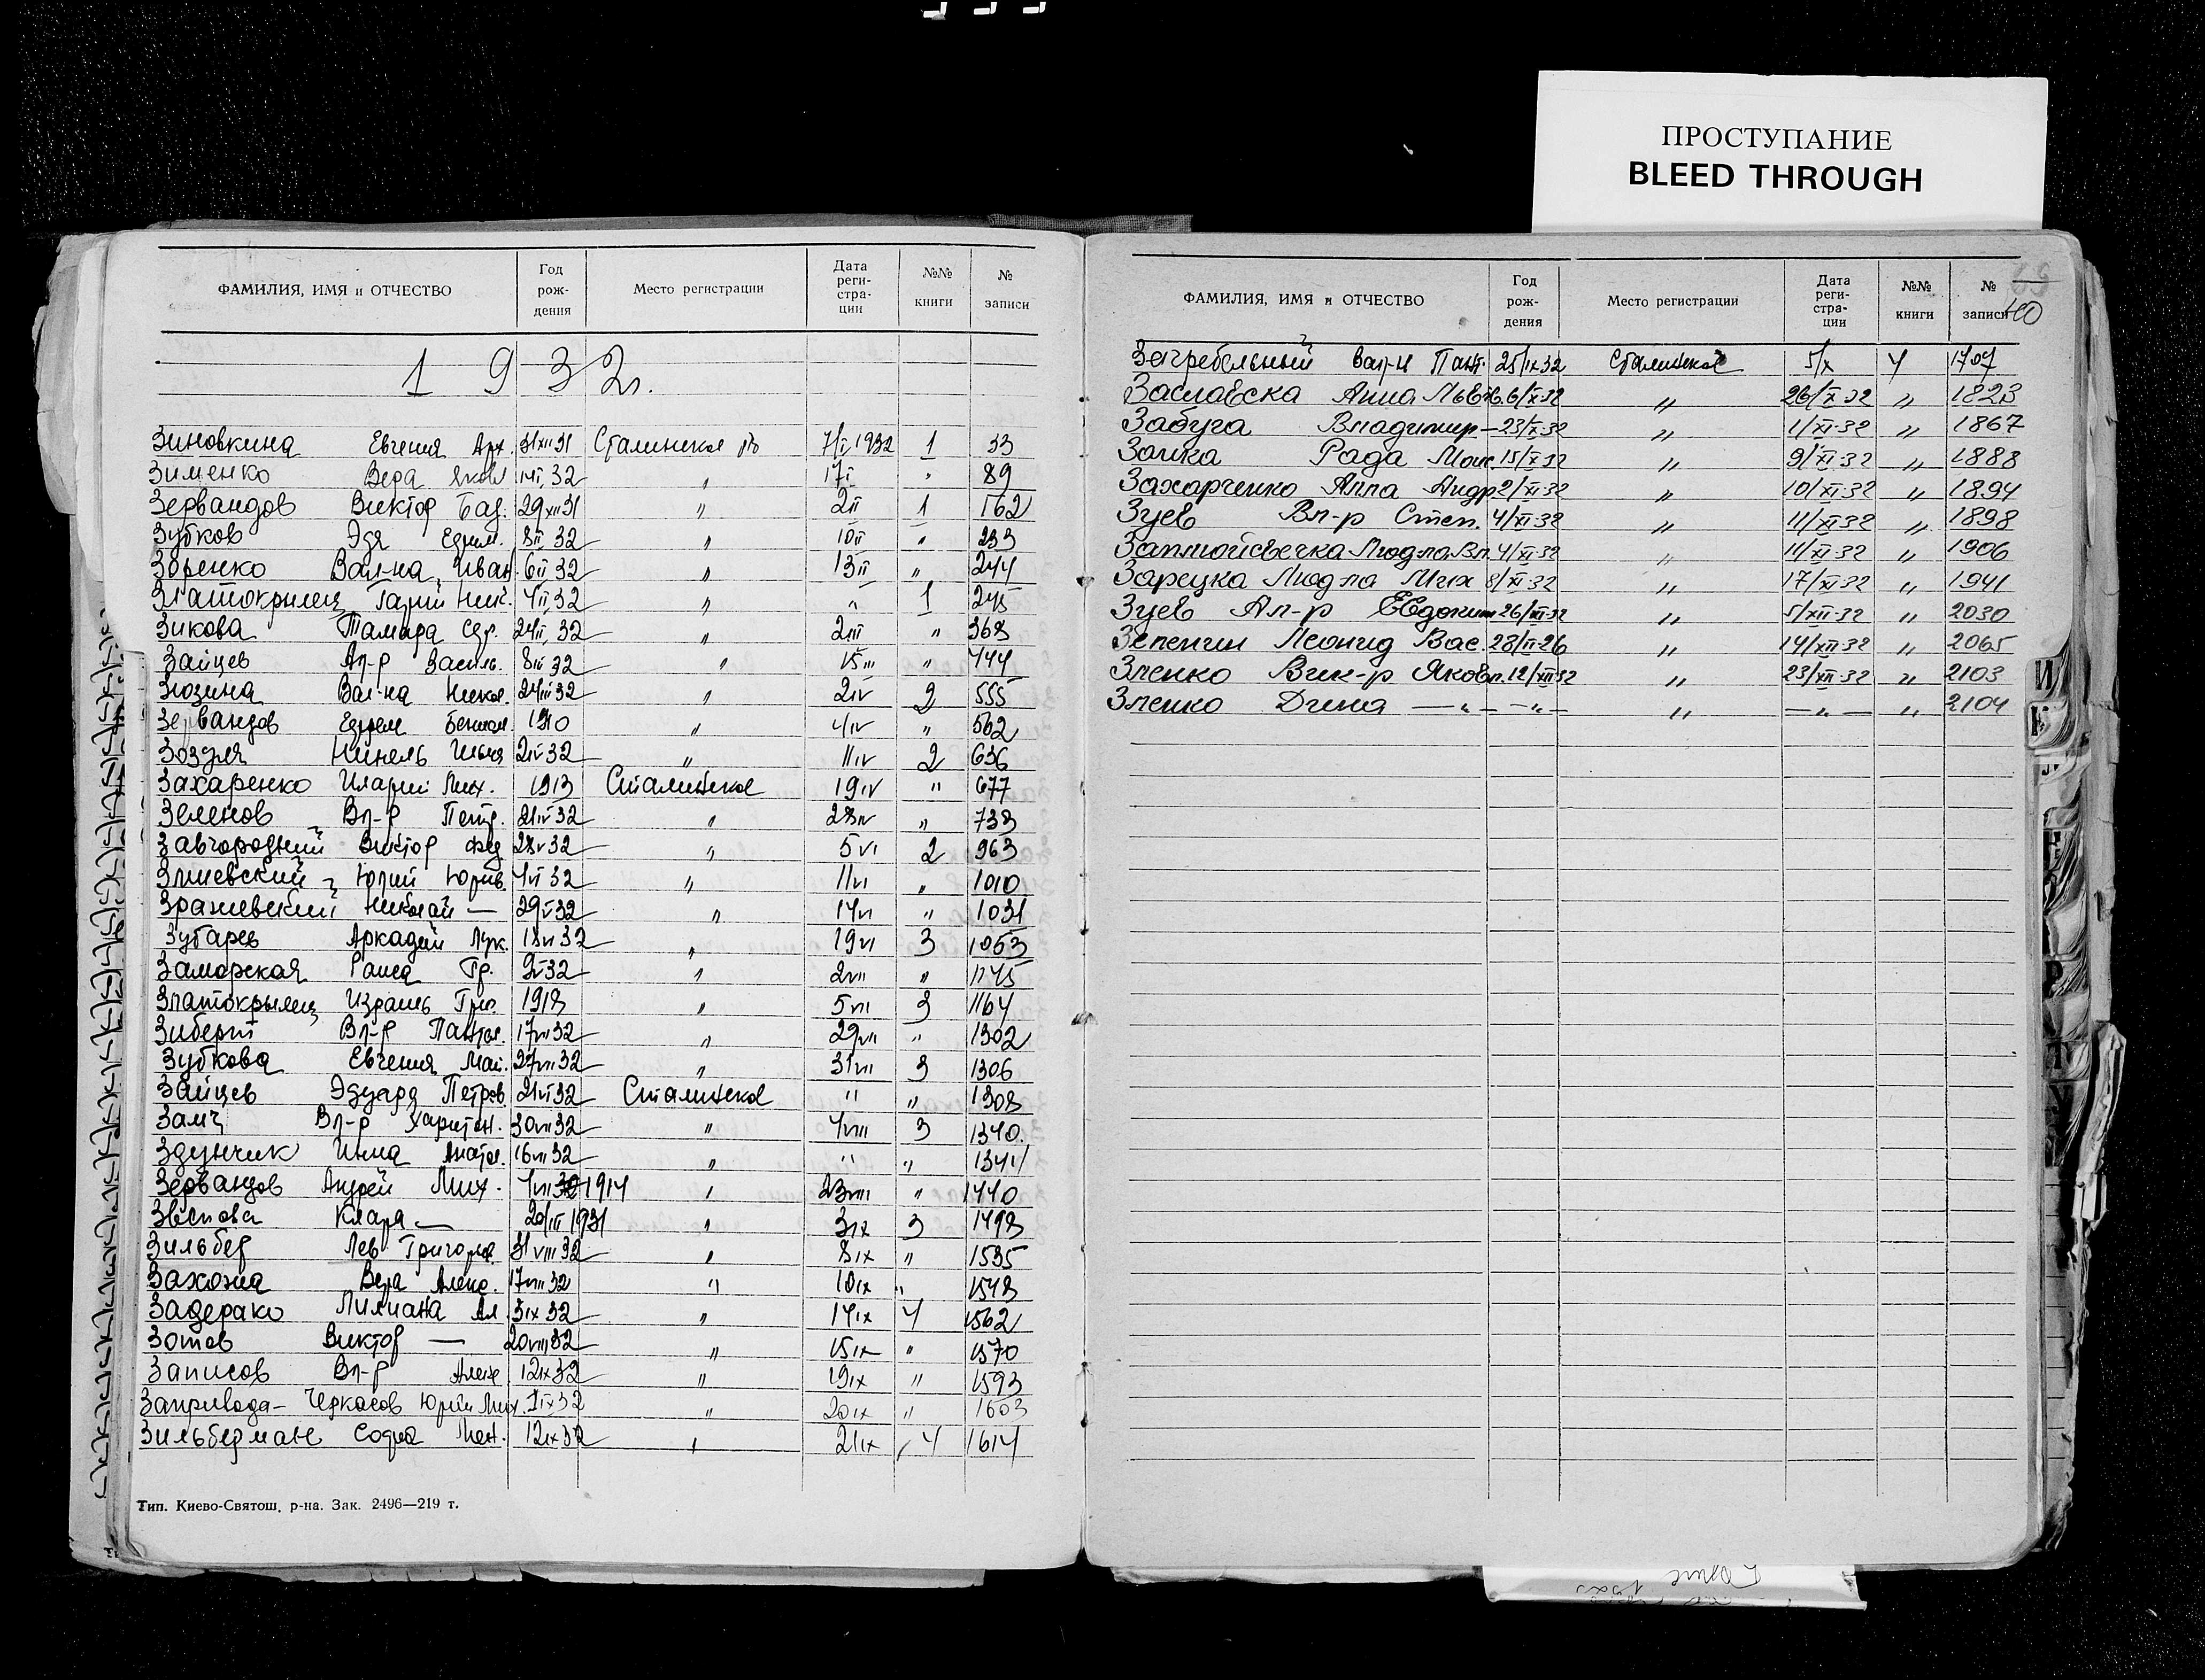 ПРОСТУПАНИЕ
BLEED THROUGH
ФАМИЛИЯ, ИМЯ и ОТЧЕСТВО Год рож-дения Место регистрации Дата реги-стра-ции №№ книги № записи
1 9 3 2 г.
Зиновкина Евгения Арх. 31 XII 31 Сталинское 7/I 1932 1 33
Зименко Вера Яковл 32 17 I " 89
Зервандов Виктор Баг. 29 XII 31 " 2 II 1 162
Зубков Эдя Ефим. 8 II 32 " 10 II " 233
Зоренко Вал-на Иван. 6 II 32 " 13 II " 244
Златокрилец Гарий Ник. 4 II 32 " " 1 245
Зикова Тамара 24 II 32 " 2 III " 368
Зайцев Ал-р Василь. 8 III 32 " 15 III " 444
Зюзина Вал-на Никол. 24 III 32 " 2 IV 2 555
Зервандов Ефрем 1910 " 4 IV " 562
Зозуля Нинель Ильи 2 IV 32 " 11 IV 2 636
Захаренко Иларий Мих. 1913 Сталинское 19 IV " 677
Зеленов Вл-р Петр. 21 IV 32 " 28 IV " 738
Завгородний Виктор Фед. 28 V 32 " 5 VI 2 963
Змиевский Юрий Юрив. 4 VI 32 " 11 VI " 1010
Зражевский Николай — 29 V 32 " 14 VI " 1031
Зубарев Аркадий Лук. 18 VI 32 " 19 VI 3 1053
Заморская Раиса Гр. 9 V 32 " 2 VII " 1145
Златокрылец Израиль Гри. 1918 " 5 VII 3 1164
Зиберт Вл-р 17 VII 32 " 29 VII " 1302
Зубкова Евгения 27 VII 32 " 31 VII 3 1306
Зайцев Эдуард Петров. 21 VI 32 Сталинское " " 1308
Замч Вл-р Харитон. 30 VII 32 " 4 VIII 3 1340.
Здунчик Инна Анатол. 16 VII 32 " " " 1341
Зервандов Андрей Мих. 1914 " 23 VIII " 1440
Клара — 20/III 1931 " 3 IX 3 1498
Зильбер Лев Григоров. 31 VIII 32 " 8 IX " 1535
Вера Алекс. 17 VIII 32 " 10 IX " 1548
Задерако Лилиана Ал. 3 IX 32 " 14 IX 4 1562
Зотов Виктор — 20 VIII 32 " 15 IX " 1570
Записов Вл-р Алек 12 IX 32 " 19 IX " 1593
Запривода — Черкасов Юрий Мих. IX 32 " 20 IX " 1603
Зильберман Софья 12 IX 32 " 21 IX 4 1614
Тип. Киево-Святош. р-на. Зак. 2496—219 т.
ФАМИЛИЯ, ИМЯ и ОТЧЕСТВО Год рож-дения Место регистрации Дата реги-стра-ции №№ книги № записи
40
Загребельный Вал-н Пант. 25/IX 32 Сталинское 5/X 4 1707
Заславска Анна Львов. 6/X 32 " 26/X 32 " 1823
Забуга Владимир — 23/X 32 " 1/XI 32 " 1867
Заика Рада Моис. 15/X 32 " 9/XI 32 " 1888
Захарченко Алла Андр 2/XI 32 " 10/XI 32 " 1894
Зуев Вл-р Степ. 4/XI 32 " 11/XI 32 " 1898
Заплюйсвечка Людм-ла Вл. 4/XI 32 " 11/XI 32 " 1906
Зарецка Людм-ла Мих 8/XI 32 " 17/XI 32 " 1941
Зуев Ал-р Евдоким 26/XI 32 " 5/XII 32 " 2030
Зепенгин Леонид Вас. 28/II 26 " 14/XII 32 " 2065
Зленко Вик-р Яковл. 12/XII 32 " 23/XII 32 " 2103
Зленко Дина — " — — " — " — " — " 2104